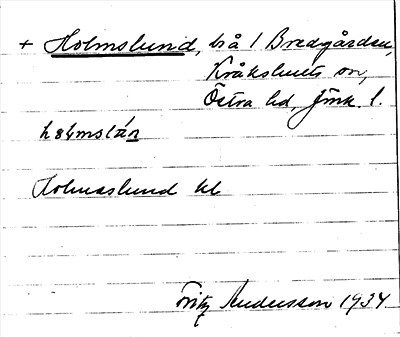 + Holmslund, trå 1 Bredgården,
Kråkshults sn,
Östra hd, Jönk. l.
holmslán
Holmaslund kl
Fritz Andersson 1934